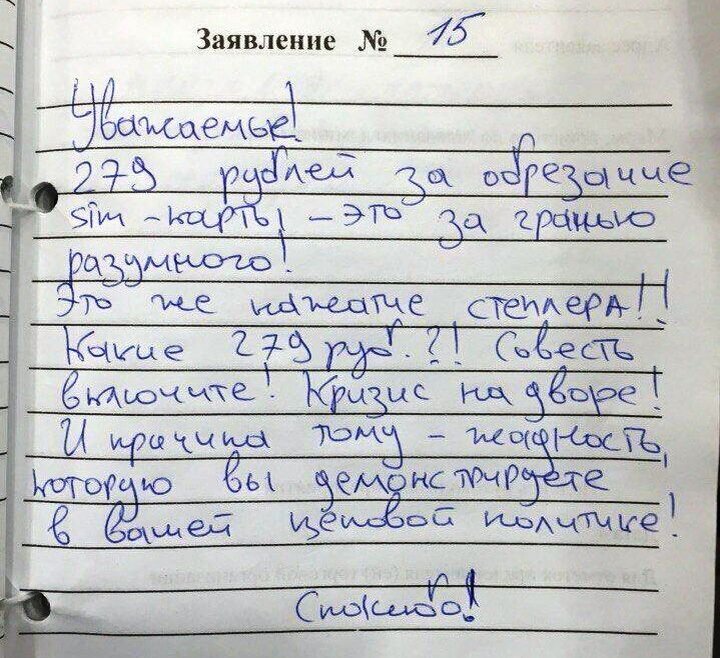 Заявление № 15
Уважаемые!
279 рублей за обрезание
sim-карты – это за гранью
разумного!
Это же нажатие степлера!!
Какие 279 руб.?! Совесть
включите! Кризис на дворе!
И причина тому – жадность,
которую вы демонстрируете
в вашей ценовой политике!
Спасибо!